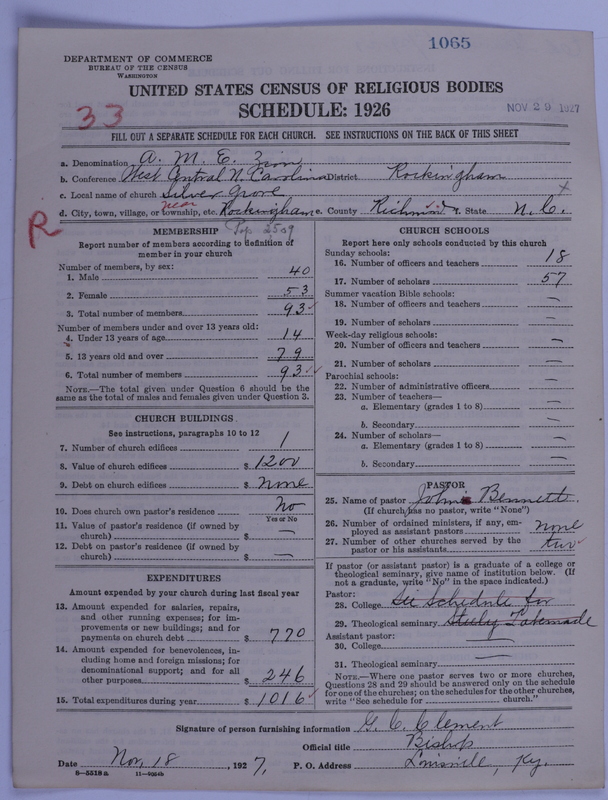 1065
DEPARTMENT OF COMMERCE
BUREAU OF THE CENSUS
WASHINGTON
UNITED STATES CENSUS OF RELIGIOUS BODIES
SCHEDULE: 1926
33
NOV 29 1927
FILL OUT A SEPARATE SCHEDULE FOR EACH CHURCH. SEE INSTRUCTIONS ON THE BACK OF THIS SHEET
a. Denomination A. M. E. Zion
b. Conference West Central N. Carolina District Rockingham
c. Local name of church Silver Grove
near
d. City, town, village, or township, etc. Rockingham e. County Richmond f. State N. C.
R
Pop 2509
MEMBERSHIP
Report number of members according to definition of member in your church
Number of members, by sex:
1. Male 40
2. Female 53
3. Total number of members 93
Number of members under and over 13 years old:
4. Under 13 years of age 14
5. 13 years old and over 79
6. Total number of members 93
NOTE.—The total given under Question 6 should be the same as the total of males and females given under Question 3.
CHURCH BUILDINGS
See instructions, paragraphs 10 to 12
7. Number of church edifices 1
8. Value of church edifices $ 1200
9. Debt on church edifices $ None
10. Does church own pastor's residence? No
Yes or No
11. Value of pastor's residence (if owned by church) $ —
12. Debt on pastor's residence (if owned by church) $ —
EXPENDITURES
Amount expended by your church during last fiscal year
13. Amount expended for salaries, repairs, and other running expenses; for improvements or new buildings; and for payments on church debt $ 770
14. Amount expended for benevolences, including home and foreign missions; for denominational support; and for all other purposes $ 246
15. Total expenditures during year $ 1016
CHURCH SCHOOLS
Report here only schools conducted by this church
Sunday schools:
16. Number of officers and teachers 18
17. Number of scholars 57
Summer vacation Bible schools:
18. Number of officers and teachers —
19. Number of scholars —
Week-day religious schools:
20. Number of officers and teachers —
21. Number of scholars —
Parochial schools:
22. Number of administrative officers —
23. Number of teachers—
a. Elementary (grades 1 to 8) —
b. Secondary —
24. Number of scholars—
a. Elementary (grades 1 to 8) —
b. Secondary —
PASTOR
25. Name of pastor John Bennett
(If church has no pastor, write "None")
26. Number of ordained ministers, if any, employed as assistant pastors none
27. Number of other churches served by the pastor or his assistants two
If pastor (or assistant pastor) is a graduate of a college or theological seminary, give name of institution below. (If not a graduate, write "No" in the space indicated.)
Pastor:
28. College See Schedule for
29. Theological seminary
Assistant pastor:
30. College —
31. Theological seminary —
NOTE.—Where one pastor serves two or more churches, Questions 28 and 29 should be answered only on the schedule for one of the churches; on the schedules for the other churches, write "See schedule for church."
Signature of person furnishing information G. C. Clement
Official title Bishop
Date Nov, 18, 1927, P. O. Address Louisville, Ky.
8—5518a 11—9084b